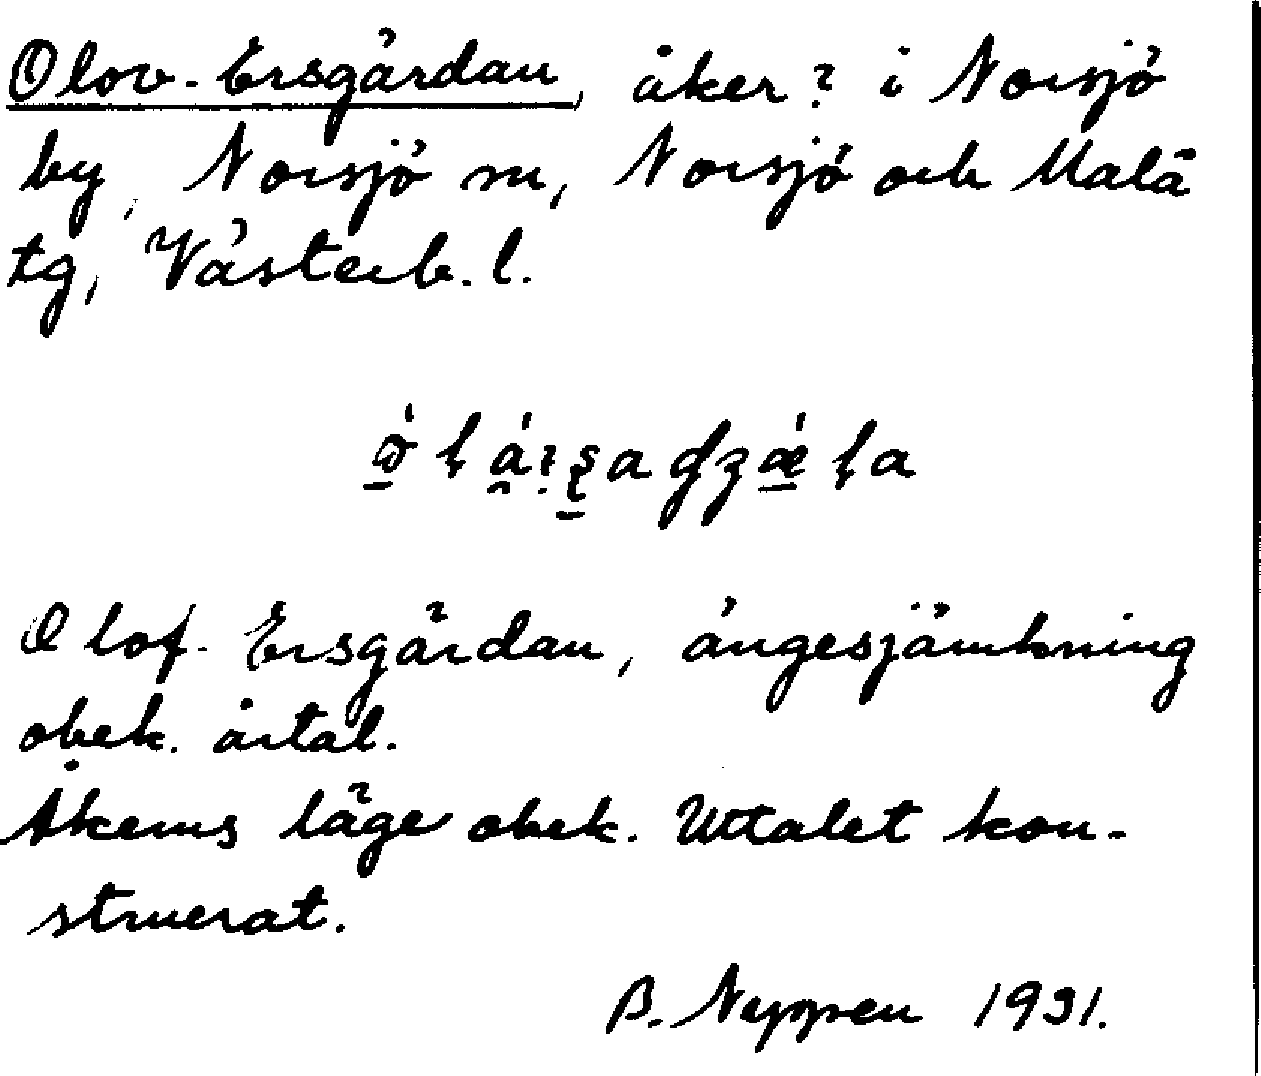 Olov-Ersgärdan, åker? i Norsjö
by, Norsjö sn, Norsjö och Malå
tg, Västerb. l.
Olof-Ersgärdan, ängesjämkning
obek. årtal.
Åkerns läge obek. Uttalet kon-
struerat.
1931.